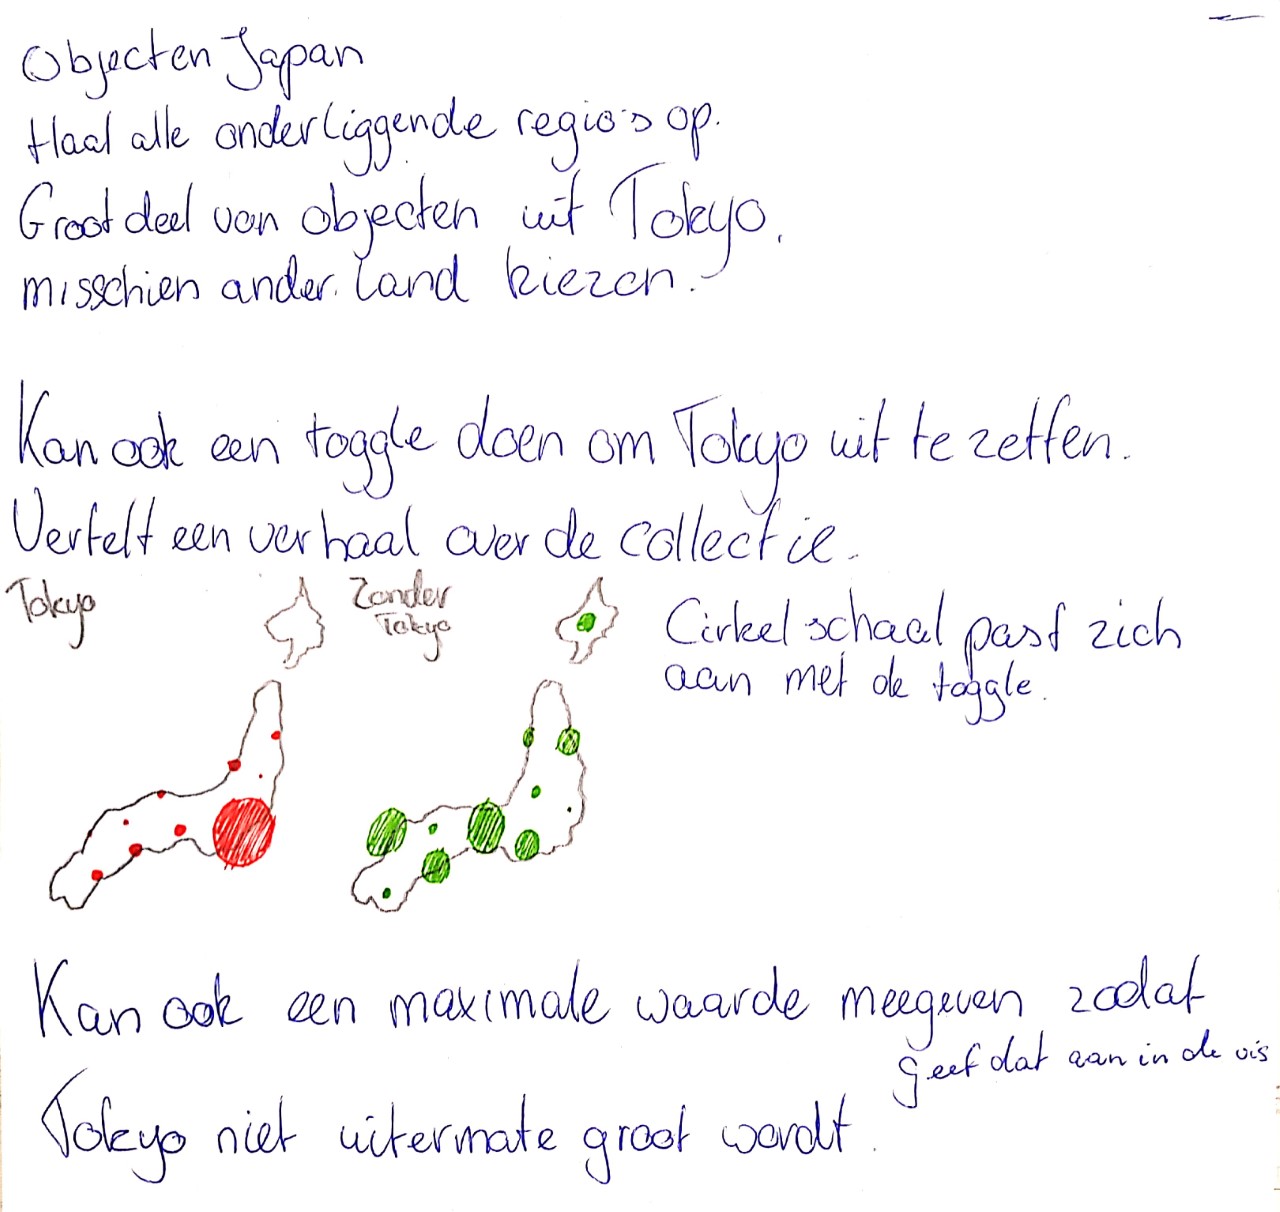 Objecten Japan
Haal alle onderliggende regio's op.
Groot deel van objecten uit Tokyo,
misschien ander land kiezen.
Kan ook een toggle doen om Tokyo uit te zetten.
Vertelt een verhaal over de collectie.
Tokyo
Zonder
Tokyo
Cirkel schaal past zich
aan met de toggle.
Kan ook een maximale waarde meegeven zodat
geef dat aan in de vis
Tokyo niet uitermate groot wordt.